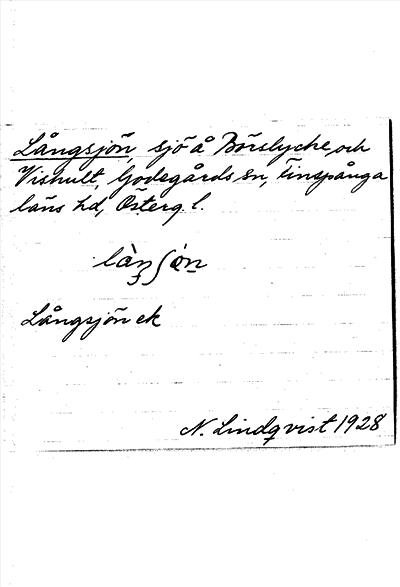 Långsjön, sjö å Börslycke och
Vishult, Godegårds sn, Finspånga
läns hd, Österg. l.
Långsjön ek
N. Lindqvist 1928